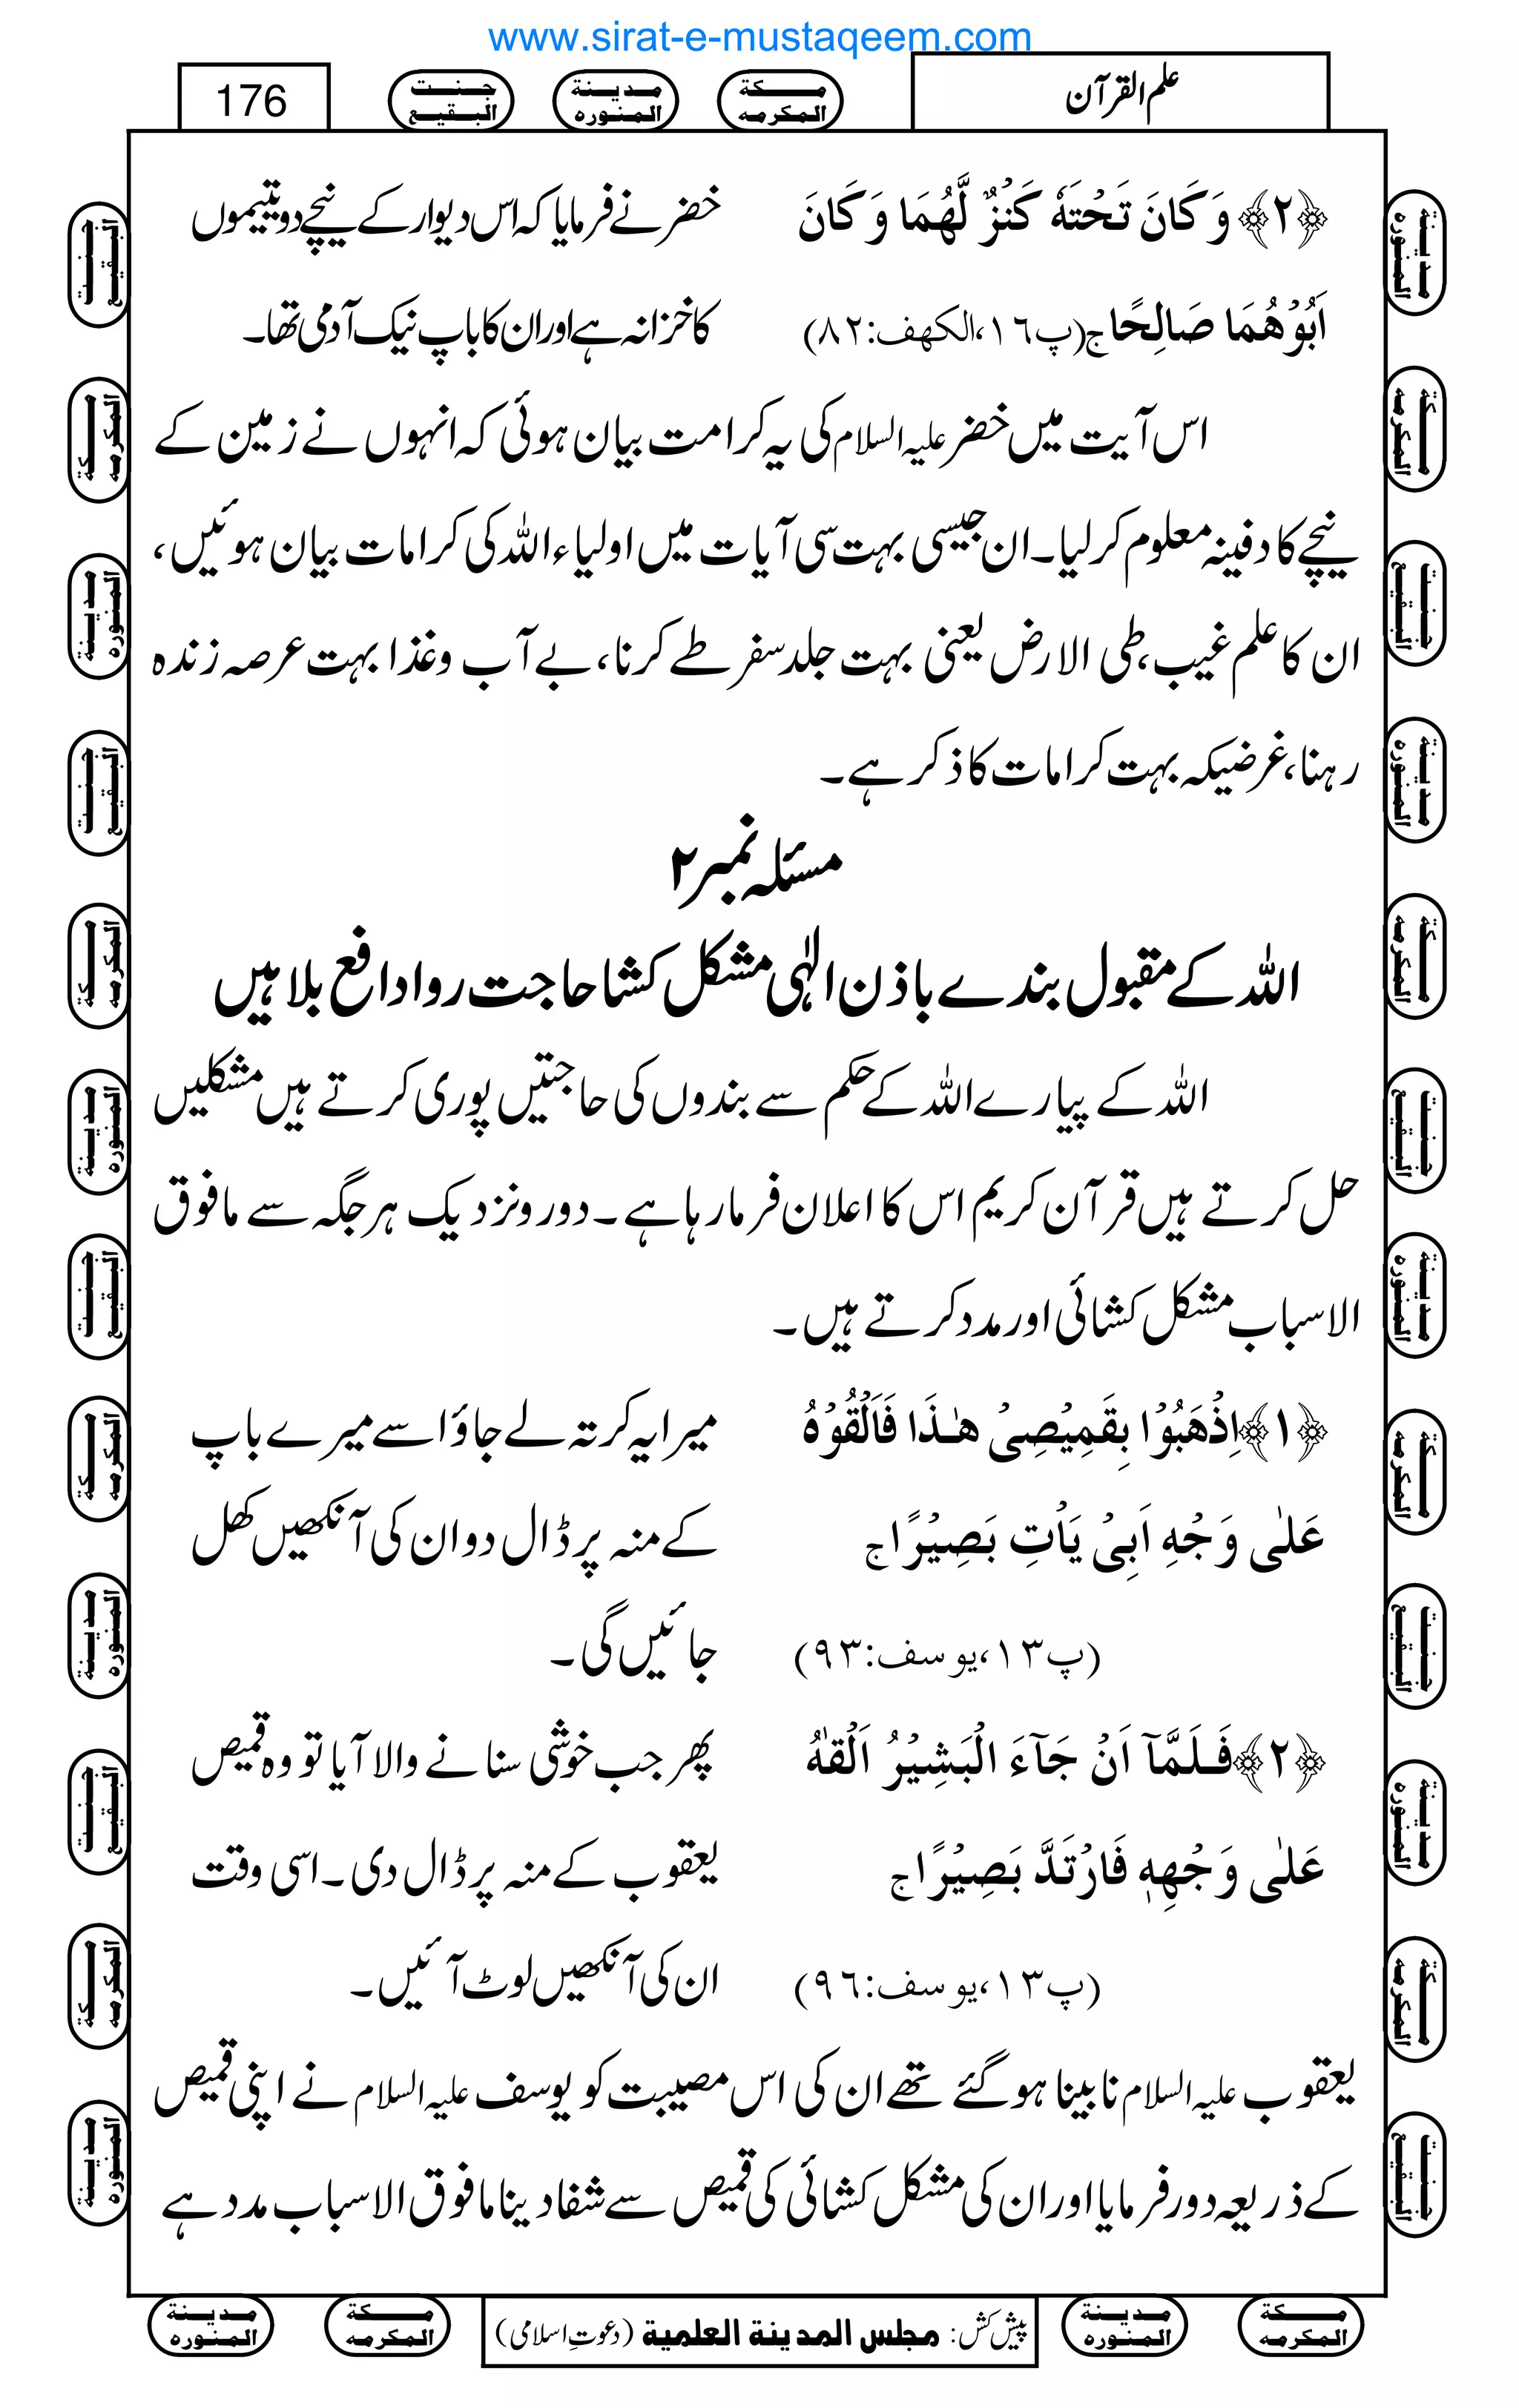 www.sirat-e-mustaqeem.com
علم القرآن
مکة المکرمه
مدینة المنوره
جنت البقیع
176
﴿۲﴾ وَ كَانَ تَحْتَهٗ كَنْزٌ لَّهُمَا وَ كَانَ
خضر نے فرمایا کہ اس دیوار کے نیچے دو یتیموں
اَبُوْهُمَا صَالِحًا ج (پ۱٦،الکهف:۸۲)
کا خزانہ ہے اور ان کا باپ نیک آدمی تھا۔
اس آیت میں خضر علیہ السلام کی یہ کرامت بیان ہوئی کہ انہوں نے زمین کے
نیچے کا دفینہ معلوم کرلیا۔ ان جیسی بہت سی آیات میں اولیاء اللہ کی کرامات بیان ہوئیں،
ان کا علم غیب، طی الارض یعنی بہت جلد سفر طے کرنا، بے آب و غذا بہت عرصہ زندہ
رہنا، غرضیکہ بہت کرامات کا ذکر ہے۔
مسئلہ نمبر ۲
اللہ کے مقبول بندے باذن الٰہی مشکل کشا حاجت روا دافع بلا ہیں
اللہ کے پیارے اللہ کے حکم سے بندوں کی حاجتیں پوری کرتے ہیں مشکلیں
حل کرتے ہیں قرآن کریم اس کا اعلان فرما رہا ہے۔ دور ونزدیک ہر جگہ سے مافوق
الاسباب مشکل کشائی اور مدد کرتے ہیں۔
﴿۱﴾ اِذْهَبُوْا بِقَمِيْصِىْ هٰذَا فَاَلْقُوْهُ
میرا یہ کرتہ لے جاؤ اسے میرے باپ
عَلٰى وَجْهِ اَبِىْ يَاْتِ بَصِيْرًا ج
کے منہ پر ڈال دو ان کی آنکھیں کھل
(پ۱۳،یوسف:۹۳)
جائیں گی۔
﴿۲﴾ فَلَمَّآ اَنْ جَآءَ الْبَشِيْرُ اَلْقٰهُ
پھر جب خوشی سنانے والا آیا تو وہ قمیص
عَلٰى وَجْهِهٖ فَارْتَدَّ بَصِيْرًا ج
یعقوب کے منہ پر ڈال دی۔ اسی وقت
(پ۱۳،یوسف:۹٦)
ان کی آنکھیں لوٹ آئیں۔
یعقوب علیہ السلام نابینا ہوگئے تھے ان کی اس مصیبت کو یوسف علیہ السلام نے اپنی قمیص
کے ذریعہ دور فرمایا اور ان کی مشکل کشائی کی قمیص سے شفا دینا مافوق الاسباب مدد ہے
پیش کش: مجلس المدینة العلمیة (دعوتِ اسلامی)